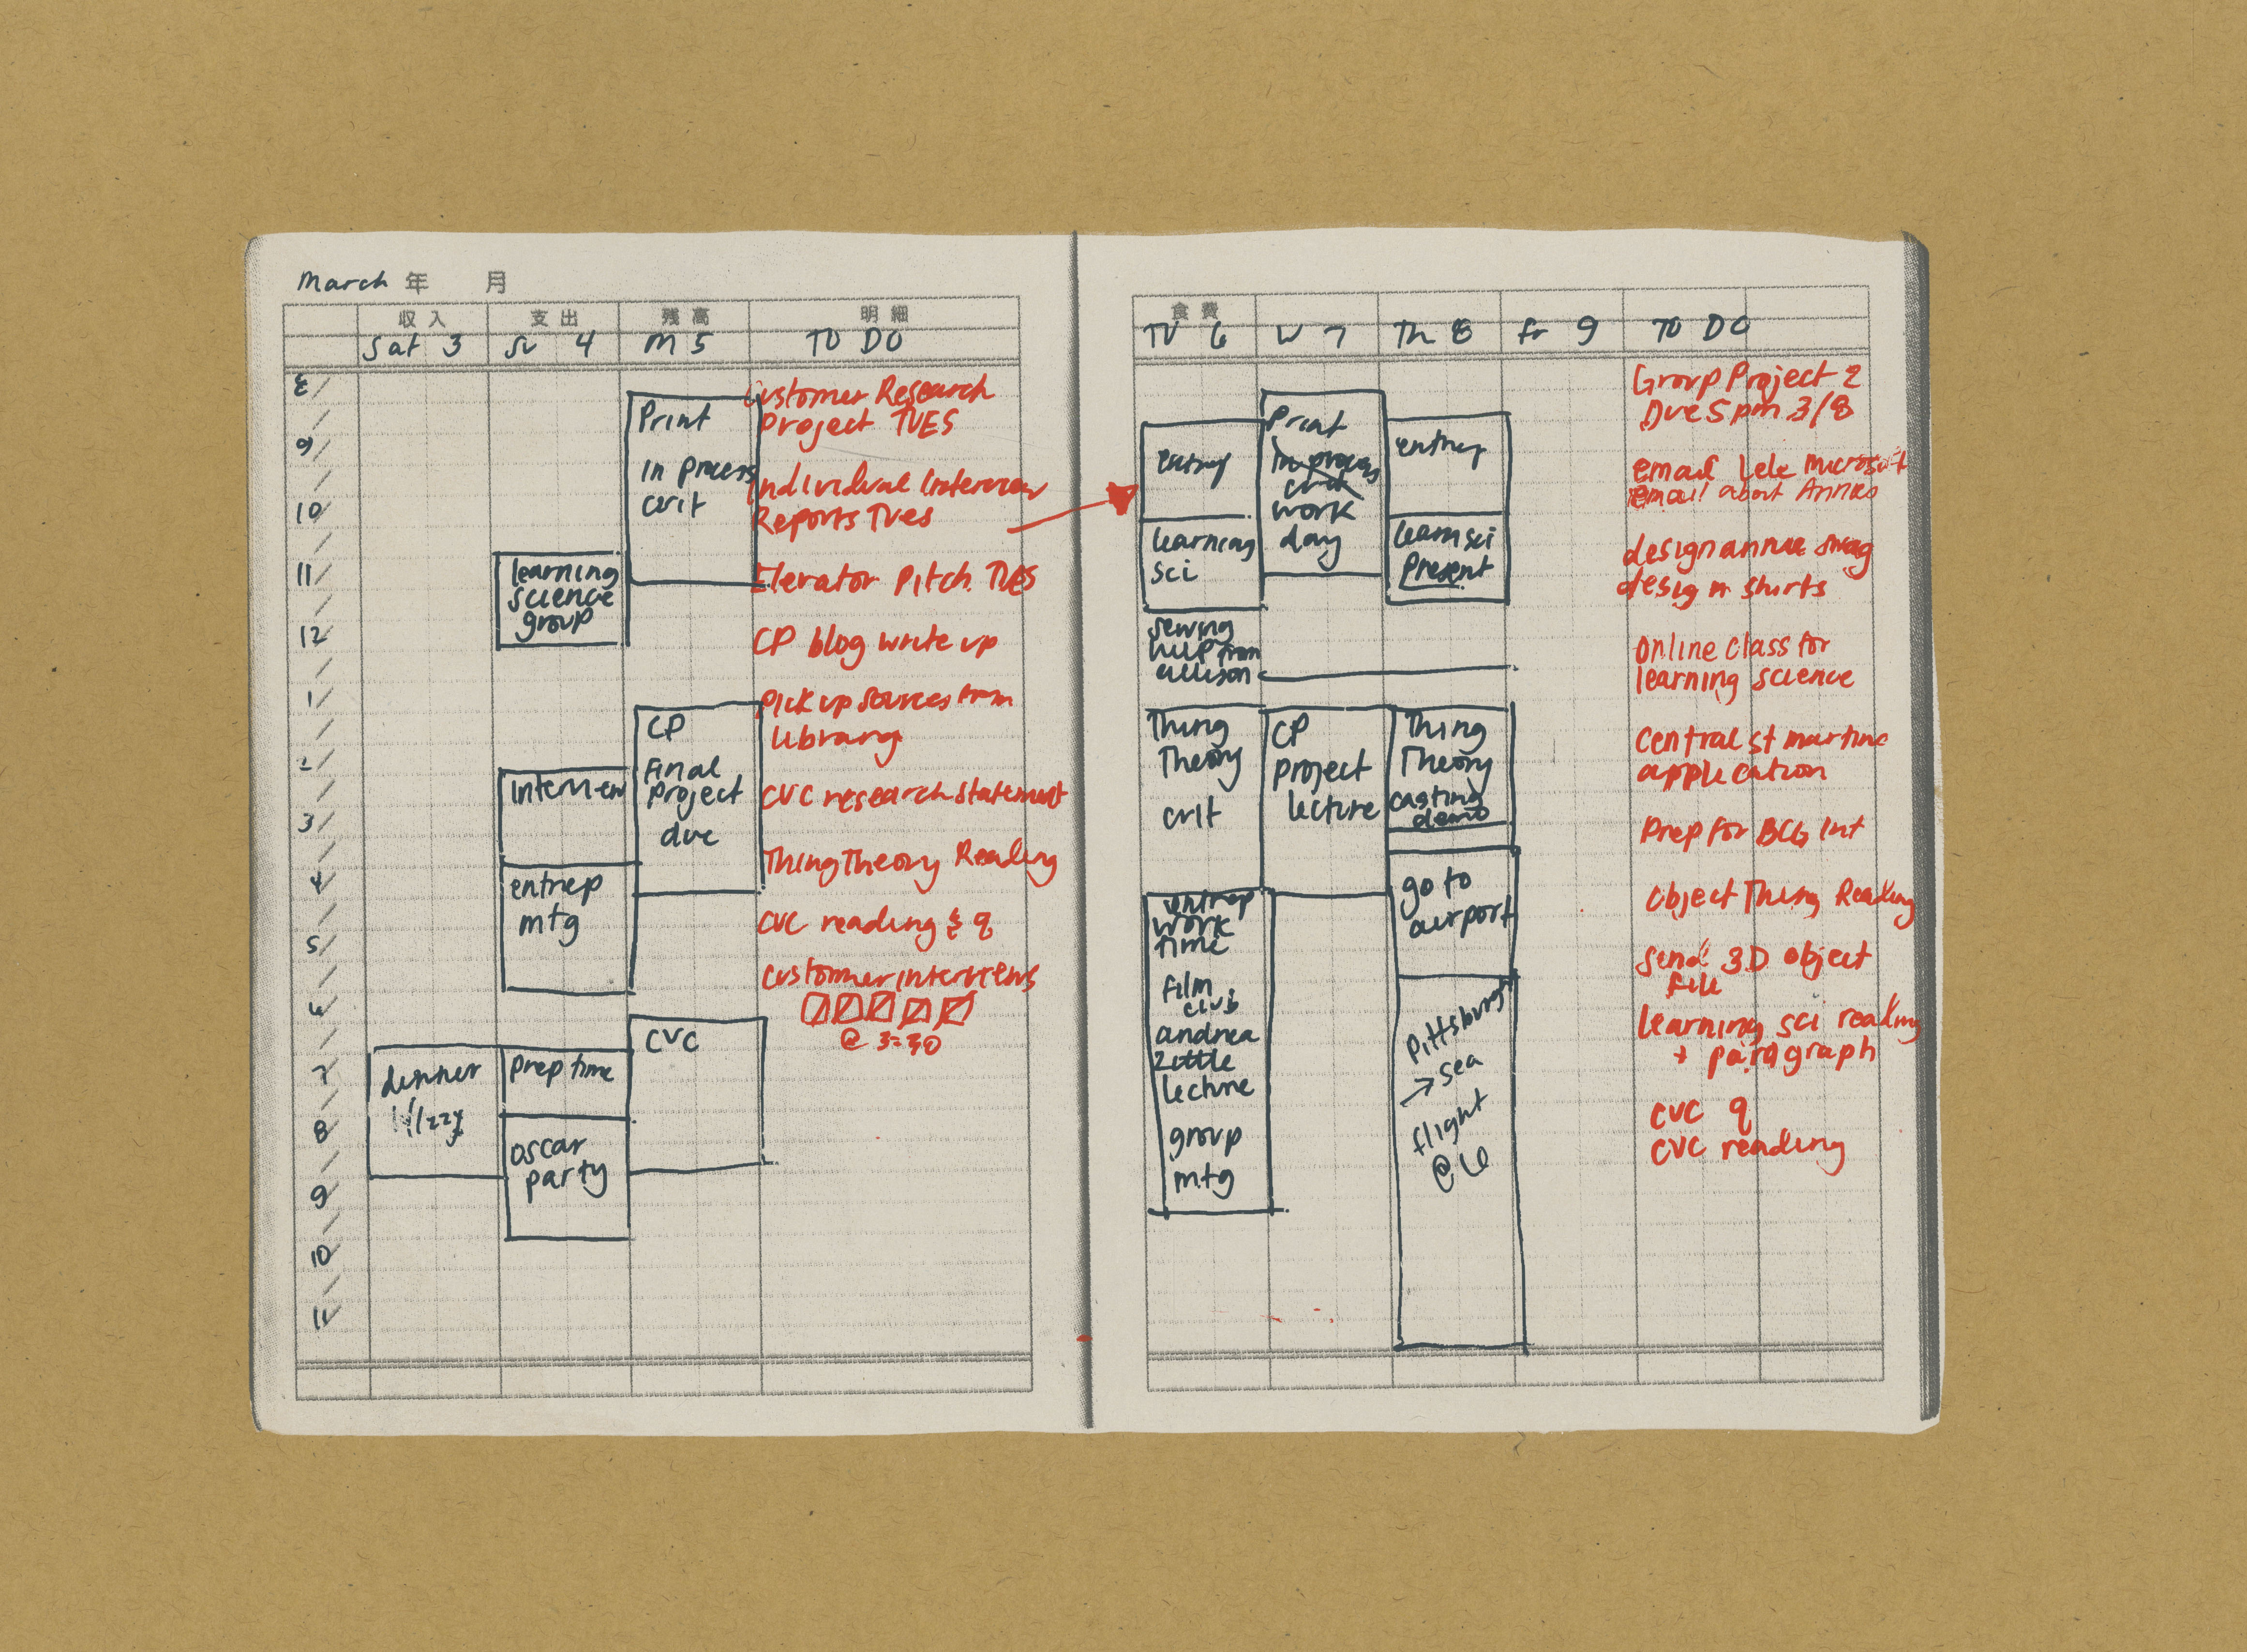 March 年 月
収入 支出 残高 明細
Sat 3 Su 4 M 5 TO DO
8
9
10
11
12
1
2
3
4
5
6
7
8
9
10
11
dinner
learning
science
group
Interview
entrep
mtg
Prep time
oscar
party
Print
in process
crit
CP
Final
project
due
CVC
Customer Research
Project TUES
Individual Interview
Reports Tues
Elevator Pitch TUES
CP blog write up
Pick up sources from
library
CVC research statement
Thing Theory Reading
CVC reading & q
Customer interviews
@ 3:30
食費
TU 6 W 7 Th 8 fr 9 TO DO
entrep
learning
sci
sewing
help from
allison
Thing
Theory
crit
entrep
work
time
film
club
andrea
zittle
lecture
group
mtg
Print
in process
crit
work
day
CP
project
lecture
entrep
learn sci
Present
Thing
Theory
casting
demo
go to
airport
Pittsburgh
→ sea
flight
@ 6
Group Project 2
Due 5 pm 3/8
email Lele Microsoft
email about Annas
design annae swag
design shirts
Online class for
learning science
Central st martins
application
Prep for BCG Int
Object Thing Reading
Send 3D object
file
learning sci reading
+ paragraph
CVC q
CVC reading